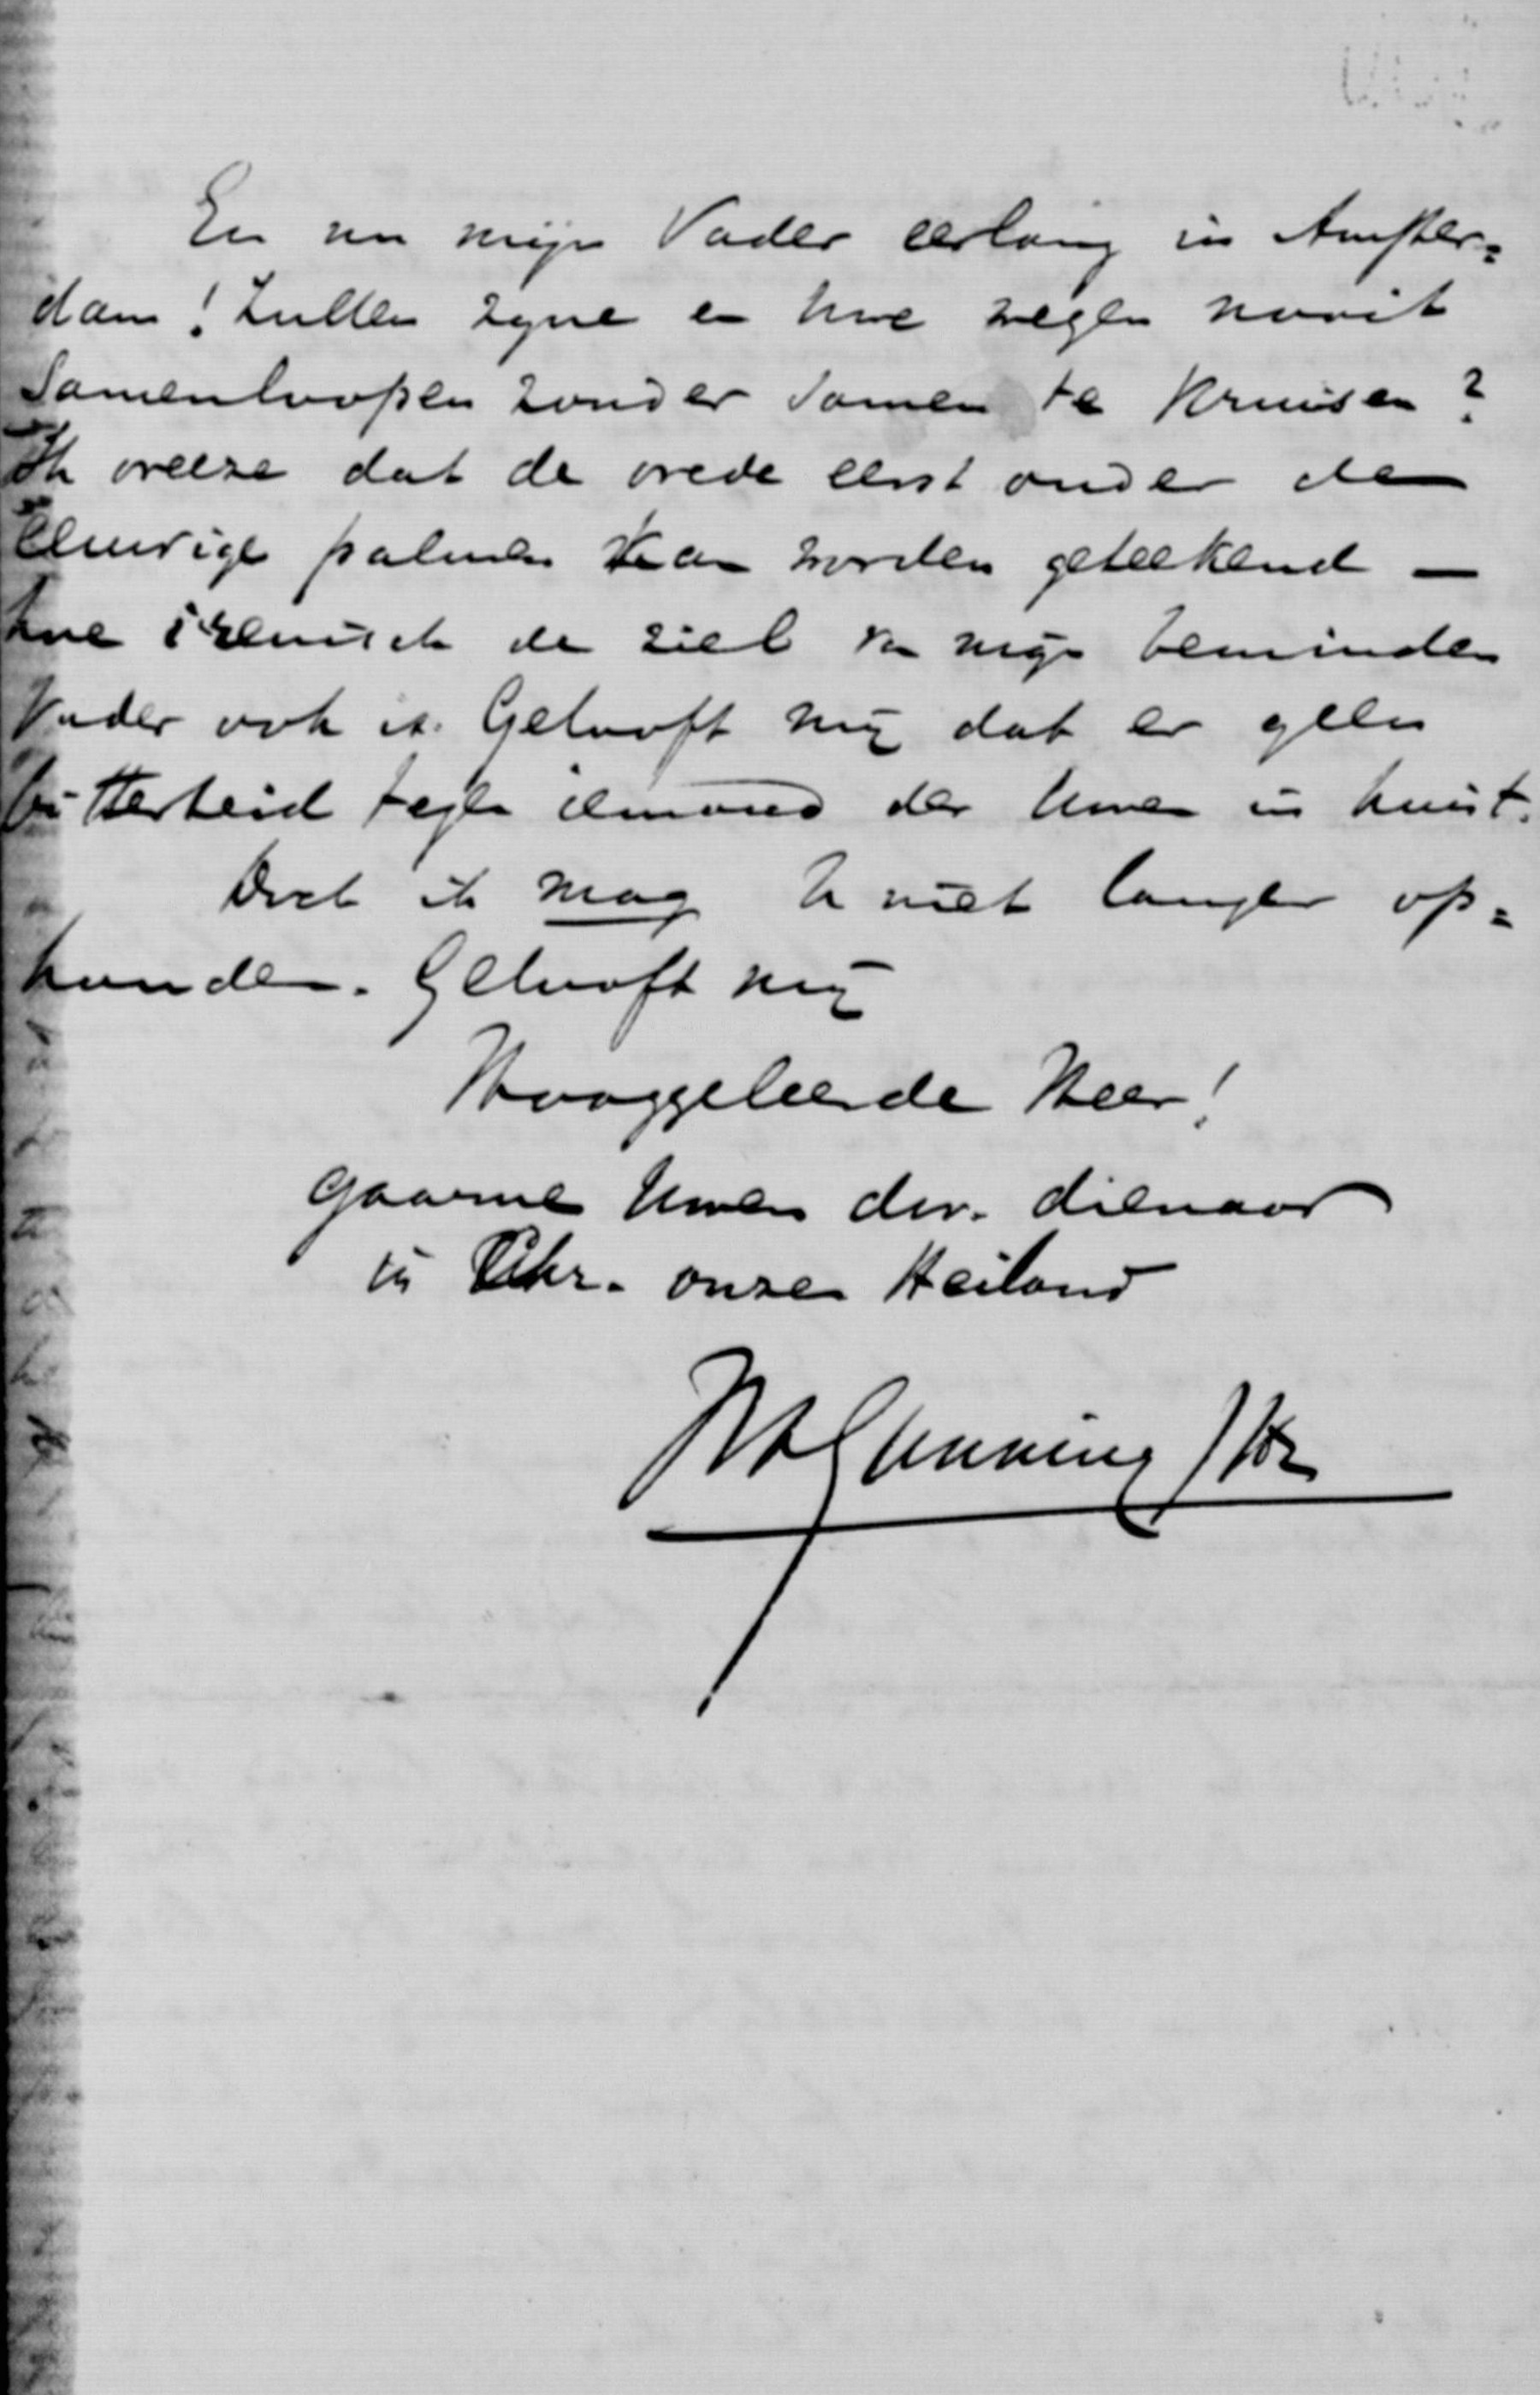 En nu mijn Vader eerlang in Amster=
dam! Zullen zijne en Uwe wegen nooit
samenloopen zonder samen te kruisen?
Ik vreeze dat de vrede eerst onder de
eeuwige palmen kan worden geteekend —
hoe irenisch de ziel van mijn beminden
Vader ook is. Gelooft mij dat er geen
bitterheid tegen iemand der Uwen in huist.
Doch ik mag U niet langer op=
houden. Gelooft mij
Hooggeleerde Heer!
gaarne Uwen dw. dienaar
in Chr. onzen Heiland
JH Gunning JHz